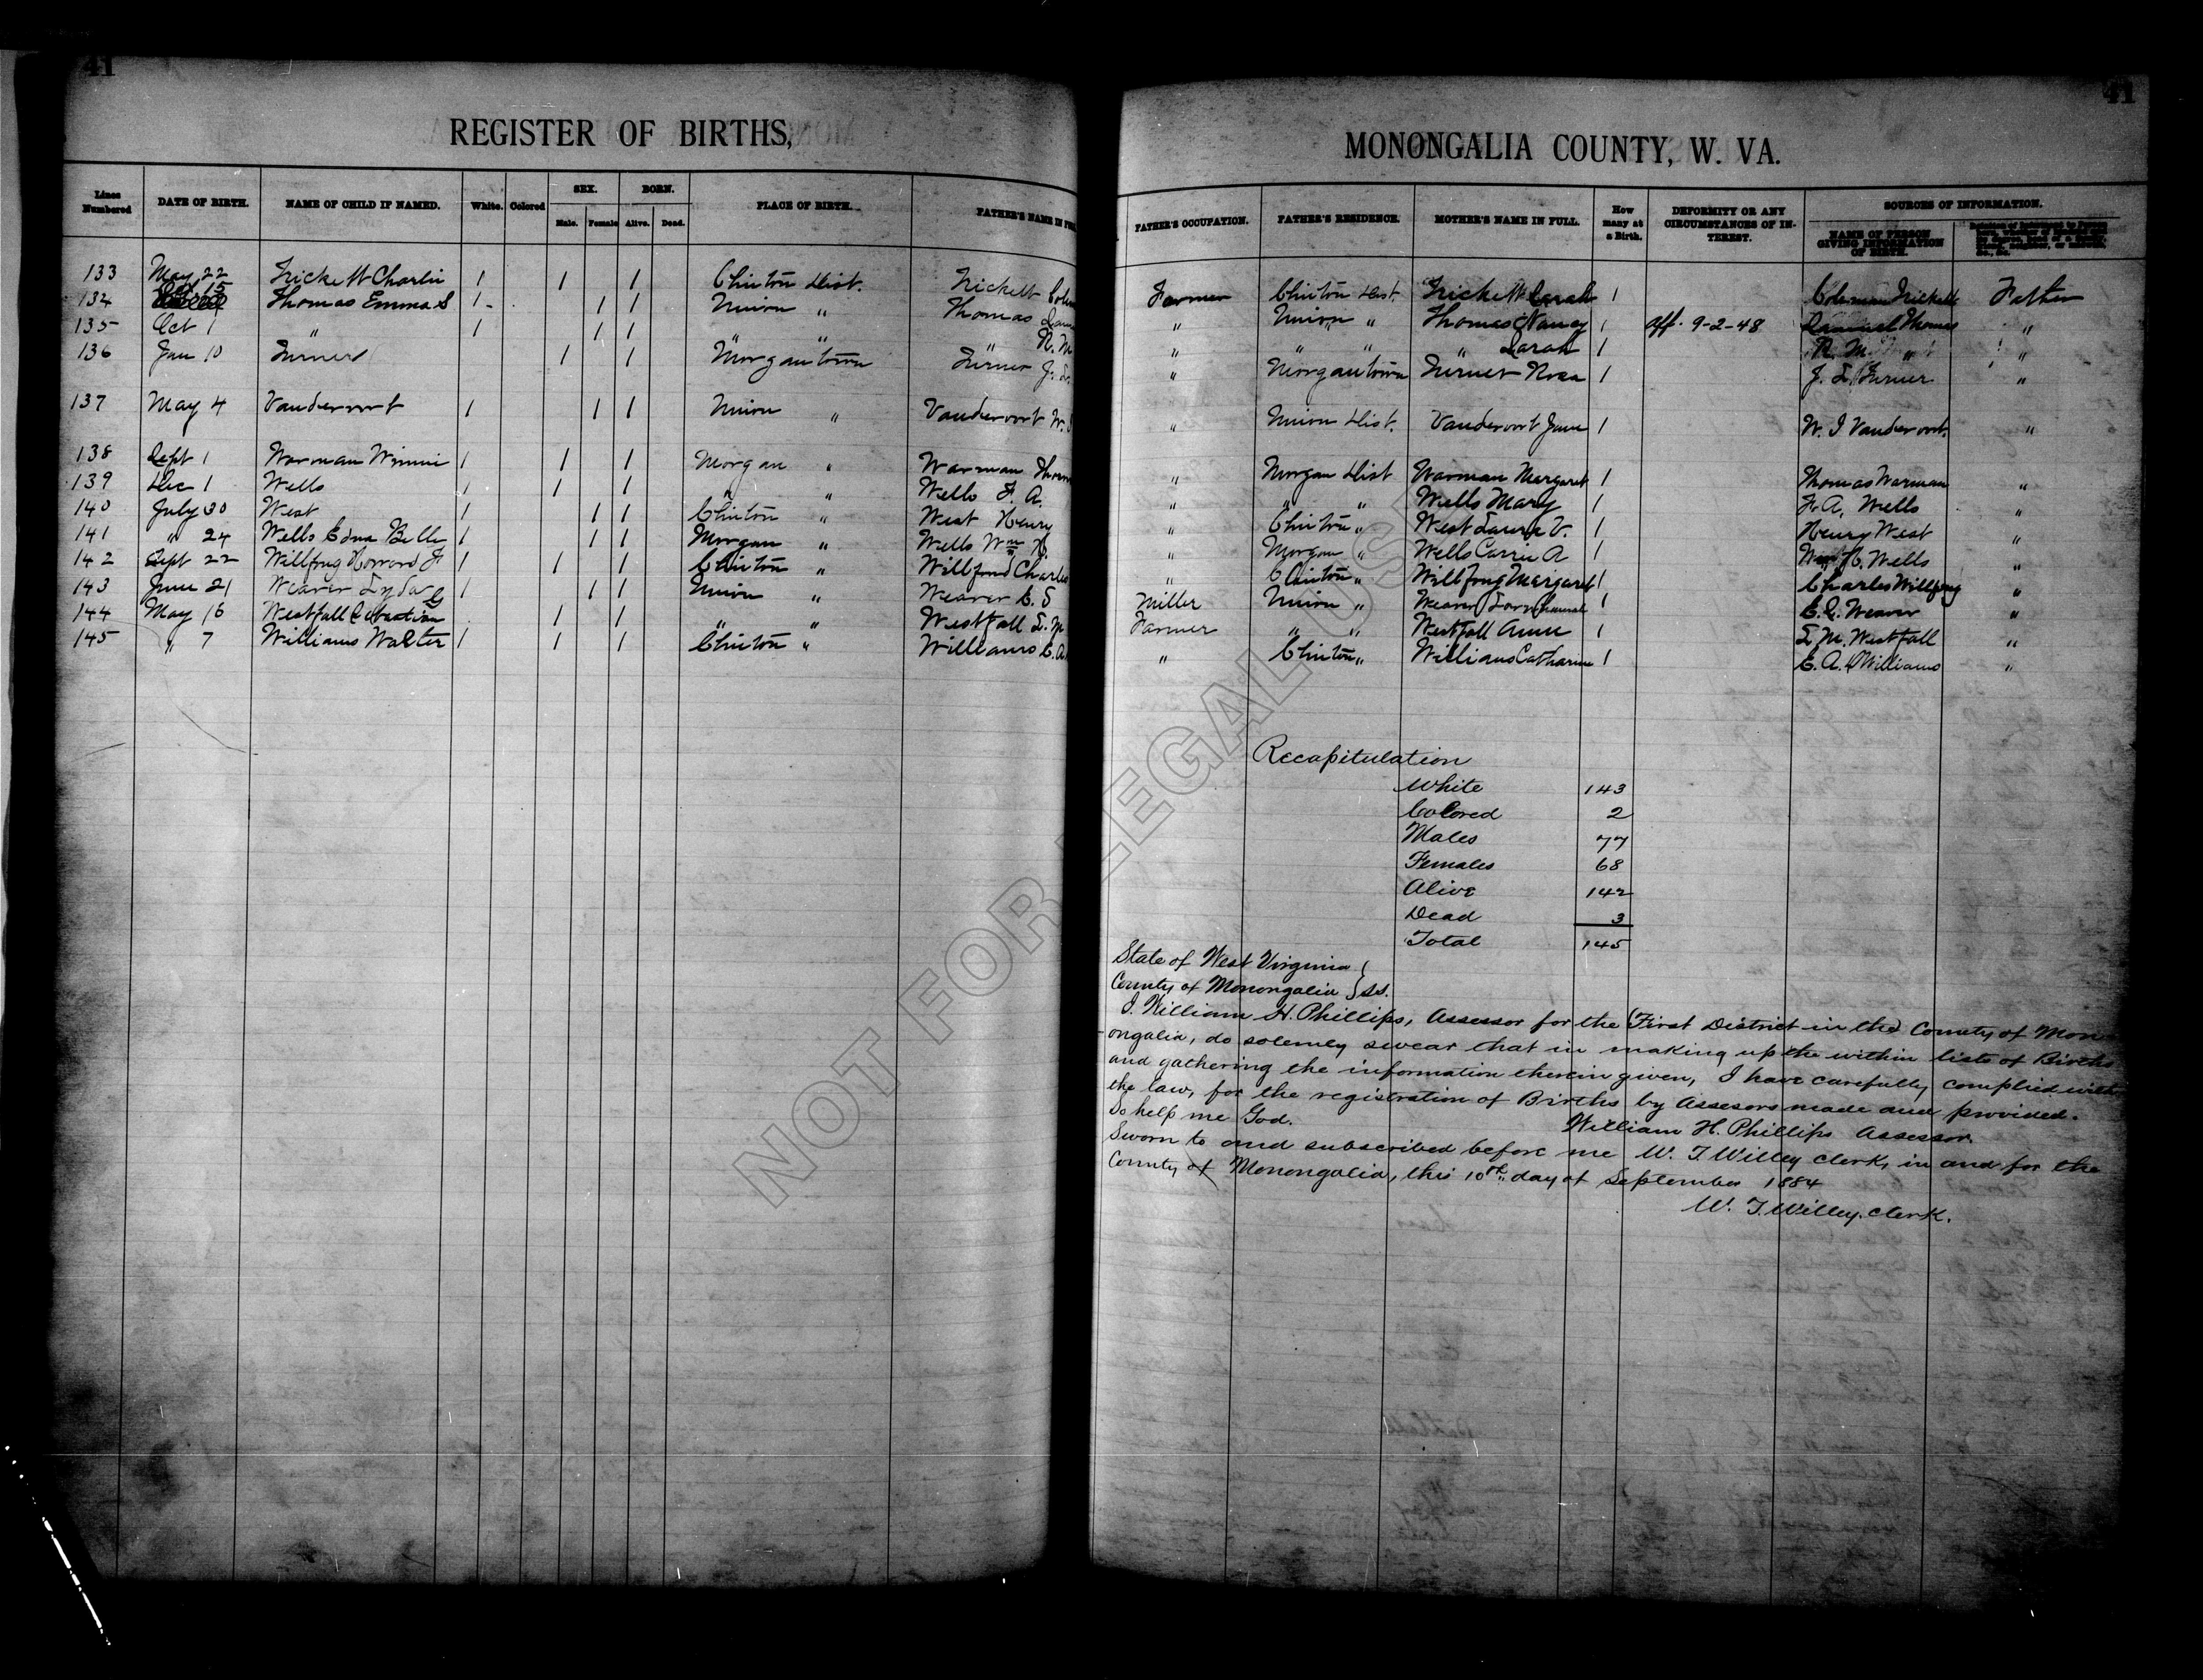 41
41
REGISTER OF BIRTHS, MONONGALIA COUNTY, W. VA.
Lines Numbered DATE OF BIRTH. NAME OF CHILD IF NAMED. White. Colored SEX. Male. Female BORN. Alive. Dead. PLACE OF BIRTH. FATHER'S NAME IN FULL FATHER'S OCCUPATION. FATHER'S RESIDENCE. MOTHER'S NAME IN FULL. How many at a Birth. DEFORMITY OR ANY CIRCUMSTANCES OF INTEREST. SOURCES OF INFORMATION. NAME OF PERSON GIVING INFORMATION OF BIRTH.
133 May 22 Trickett Charlie 1 1 1 Clinton Dist. Trickett Farmer Clinton Dist. Trickett Sarah 1 Coleman Trickett Father
134 Oct 15 Thomas Emma S 1 1 1 Union " Thomas " Union " Thomas Nancy 1 Aff. 9-2-48 Samuel Thomas "
135 Oct 1 " 1 1 1 " " " R. M " " " " Sarah 1 R. M. " "
136 Jan 10 Turner 1 1 Morgantown Turner J. " Morgantown Turner Rosa 1 J. L. Turner "
137 May 4 Vandervort 1 1 1 Union " Vandervort W. " Union Dist. Vandervort Jane 1 W. I Vandervort. "
138 Sept 1 Warman Winnie 1 1 1 Morgan " Warman " Morgan Dist Warman Margaret 1 Thomas Warman "
139 Dec 1 Wells 1 1 1 " " Wells F. A. " " " Wells Mary 1 F. A. Wells "
140 July 30 West 1 1 1 Clinton " West Henry " Clinton " West Laura V. 1 Henry West "
141 " 24 Wells Edna Belle 1 1 1 Morgan " Wells Wm H. " Morgan " Wells Carrie A 1 Wells "
142 Sept 22 Willfong Howard F 1 1 1 Clinton " Willfong Charles " Clinton " Willfong Margaret 1 Charles Willfong "
143 June 21 Weaver Lyda G 1 1 1 Union " Weaver E. S Miller Union " Weaver 1 Weaver "
144 May 16 Westfall Sebastian 1 1 " " Westfall L. M Farmer " " Westfall Anne 1 L. M. Westfall "
145 " 7 Williams Walter 1 1 1 Clinton " Williams E. A. " Clinton " Williams Catharine 1 E. A. Williams "
Recapitulation
White 143
Colored 2
Males 77
Females 68
Alive 142
Dead 3
Total 145
State of West Virginia }
County of Monongalia } ss.
I. William H. Phillips, Assessor for the (First District in the) County of Mon-
ongalia, do solemnly swear that in making up the within lists of Births
and gathering the information therein given, I have carefully complied with
the law, for the registration of Births by Assesors made and provided.
So help me God. William H. Phillips Assessor.
Sworn to and subscribed before me W. T Willey clerk, in and for the
County of Monongalia, this 10th day of September 1884
W. T. Willey. Clerk.
NOT FOR LEGAL USE